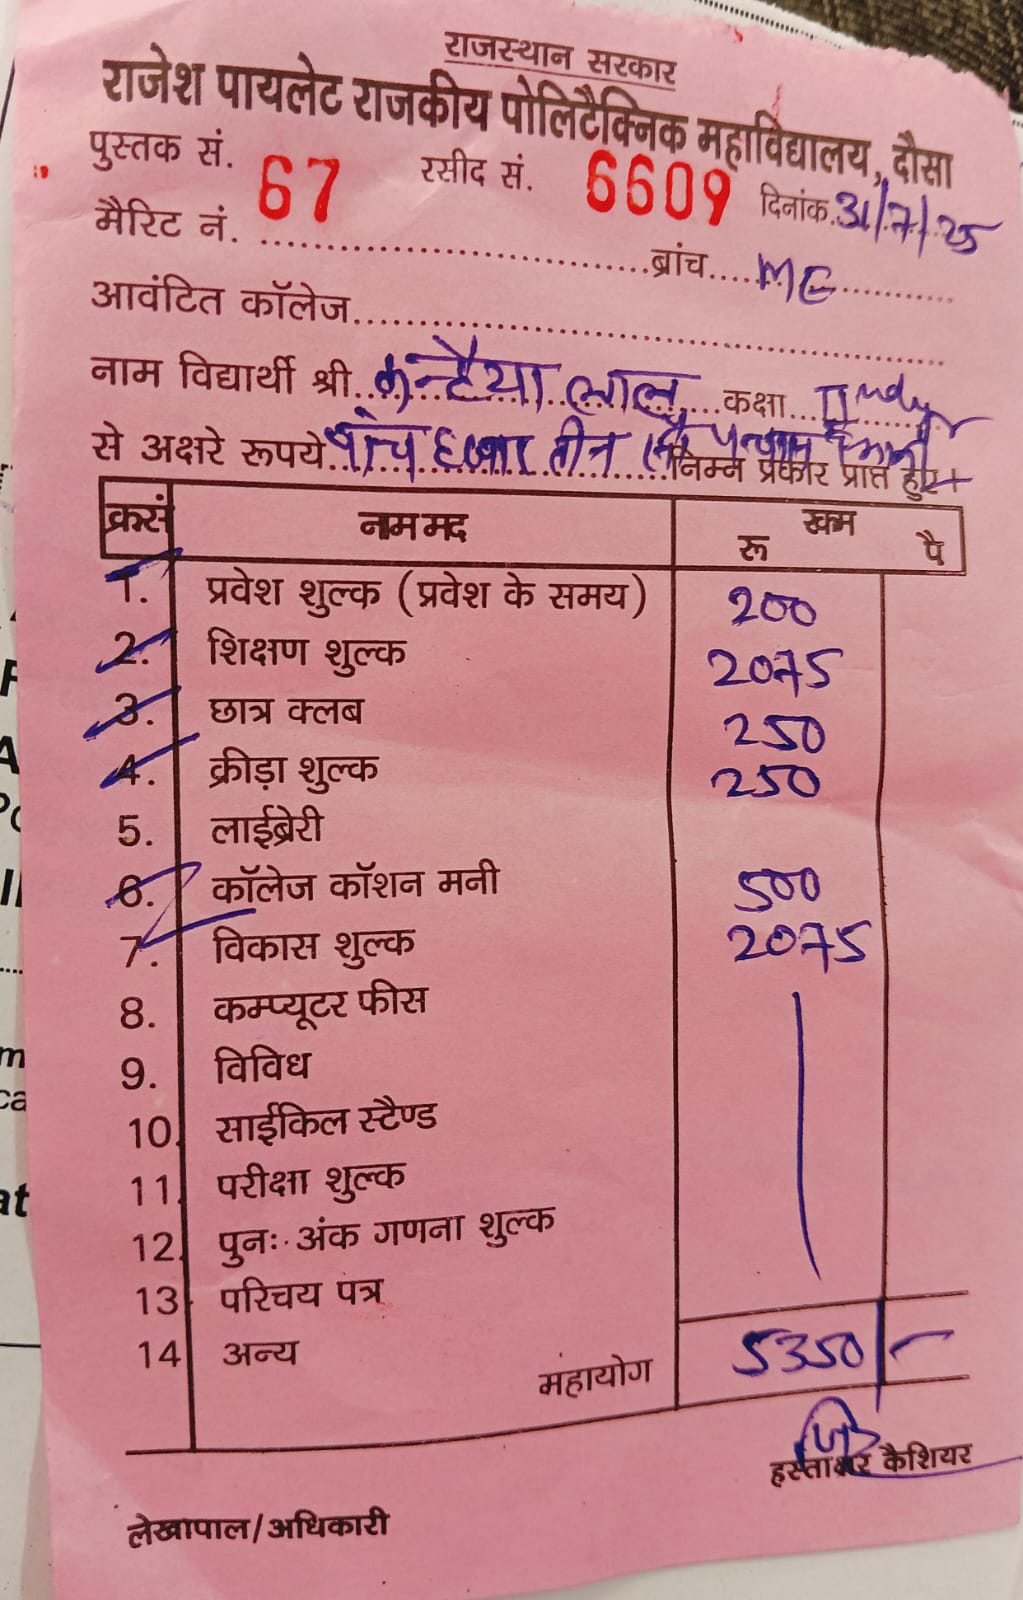 राजस्थान सरकार
राजेश पायलेट राजकीय पोलिटैक्निक महाविद्यालय, दौसा
पुस्तक सं. 67 रसीद सं. 6609 दिनांक. 31/7/25
मैरिट नं. ........ ब्रांच.... ME
आवंटित कॉलेज........
नाम विद्यार्थी श्री. कन्हैया लाल कक्षा...
से अक्षरे रूपये पांच हजार तीन सौ पचास निम्न प्रकार प्राप्त हुए
क्रसं नाम मद रकम
रू पै
1. प्रवेश शुल्क (प्रवेश के समय) 200
2. शिक्षण शुल्क 2075
3. छात्र क्लब 250
4. क्रीड़ा शुल्क 250
5. लाईब्रेरी
6. कॉलेज कॉशन मनी 500
7. विकास शुल्क 2075
8. कम्प्यूटर फीस
9. विविध
10. साईकिल स्टैण्ड
11. परीक्षा शुल्क
12. पुनः अंक गणना शुल्क
13 परिचय पत्र
14 अन्य
मंहायोग 5350/-
हस्ताक्षर कैशियर
लेखापाल/अधिकारी